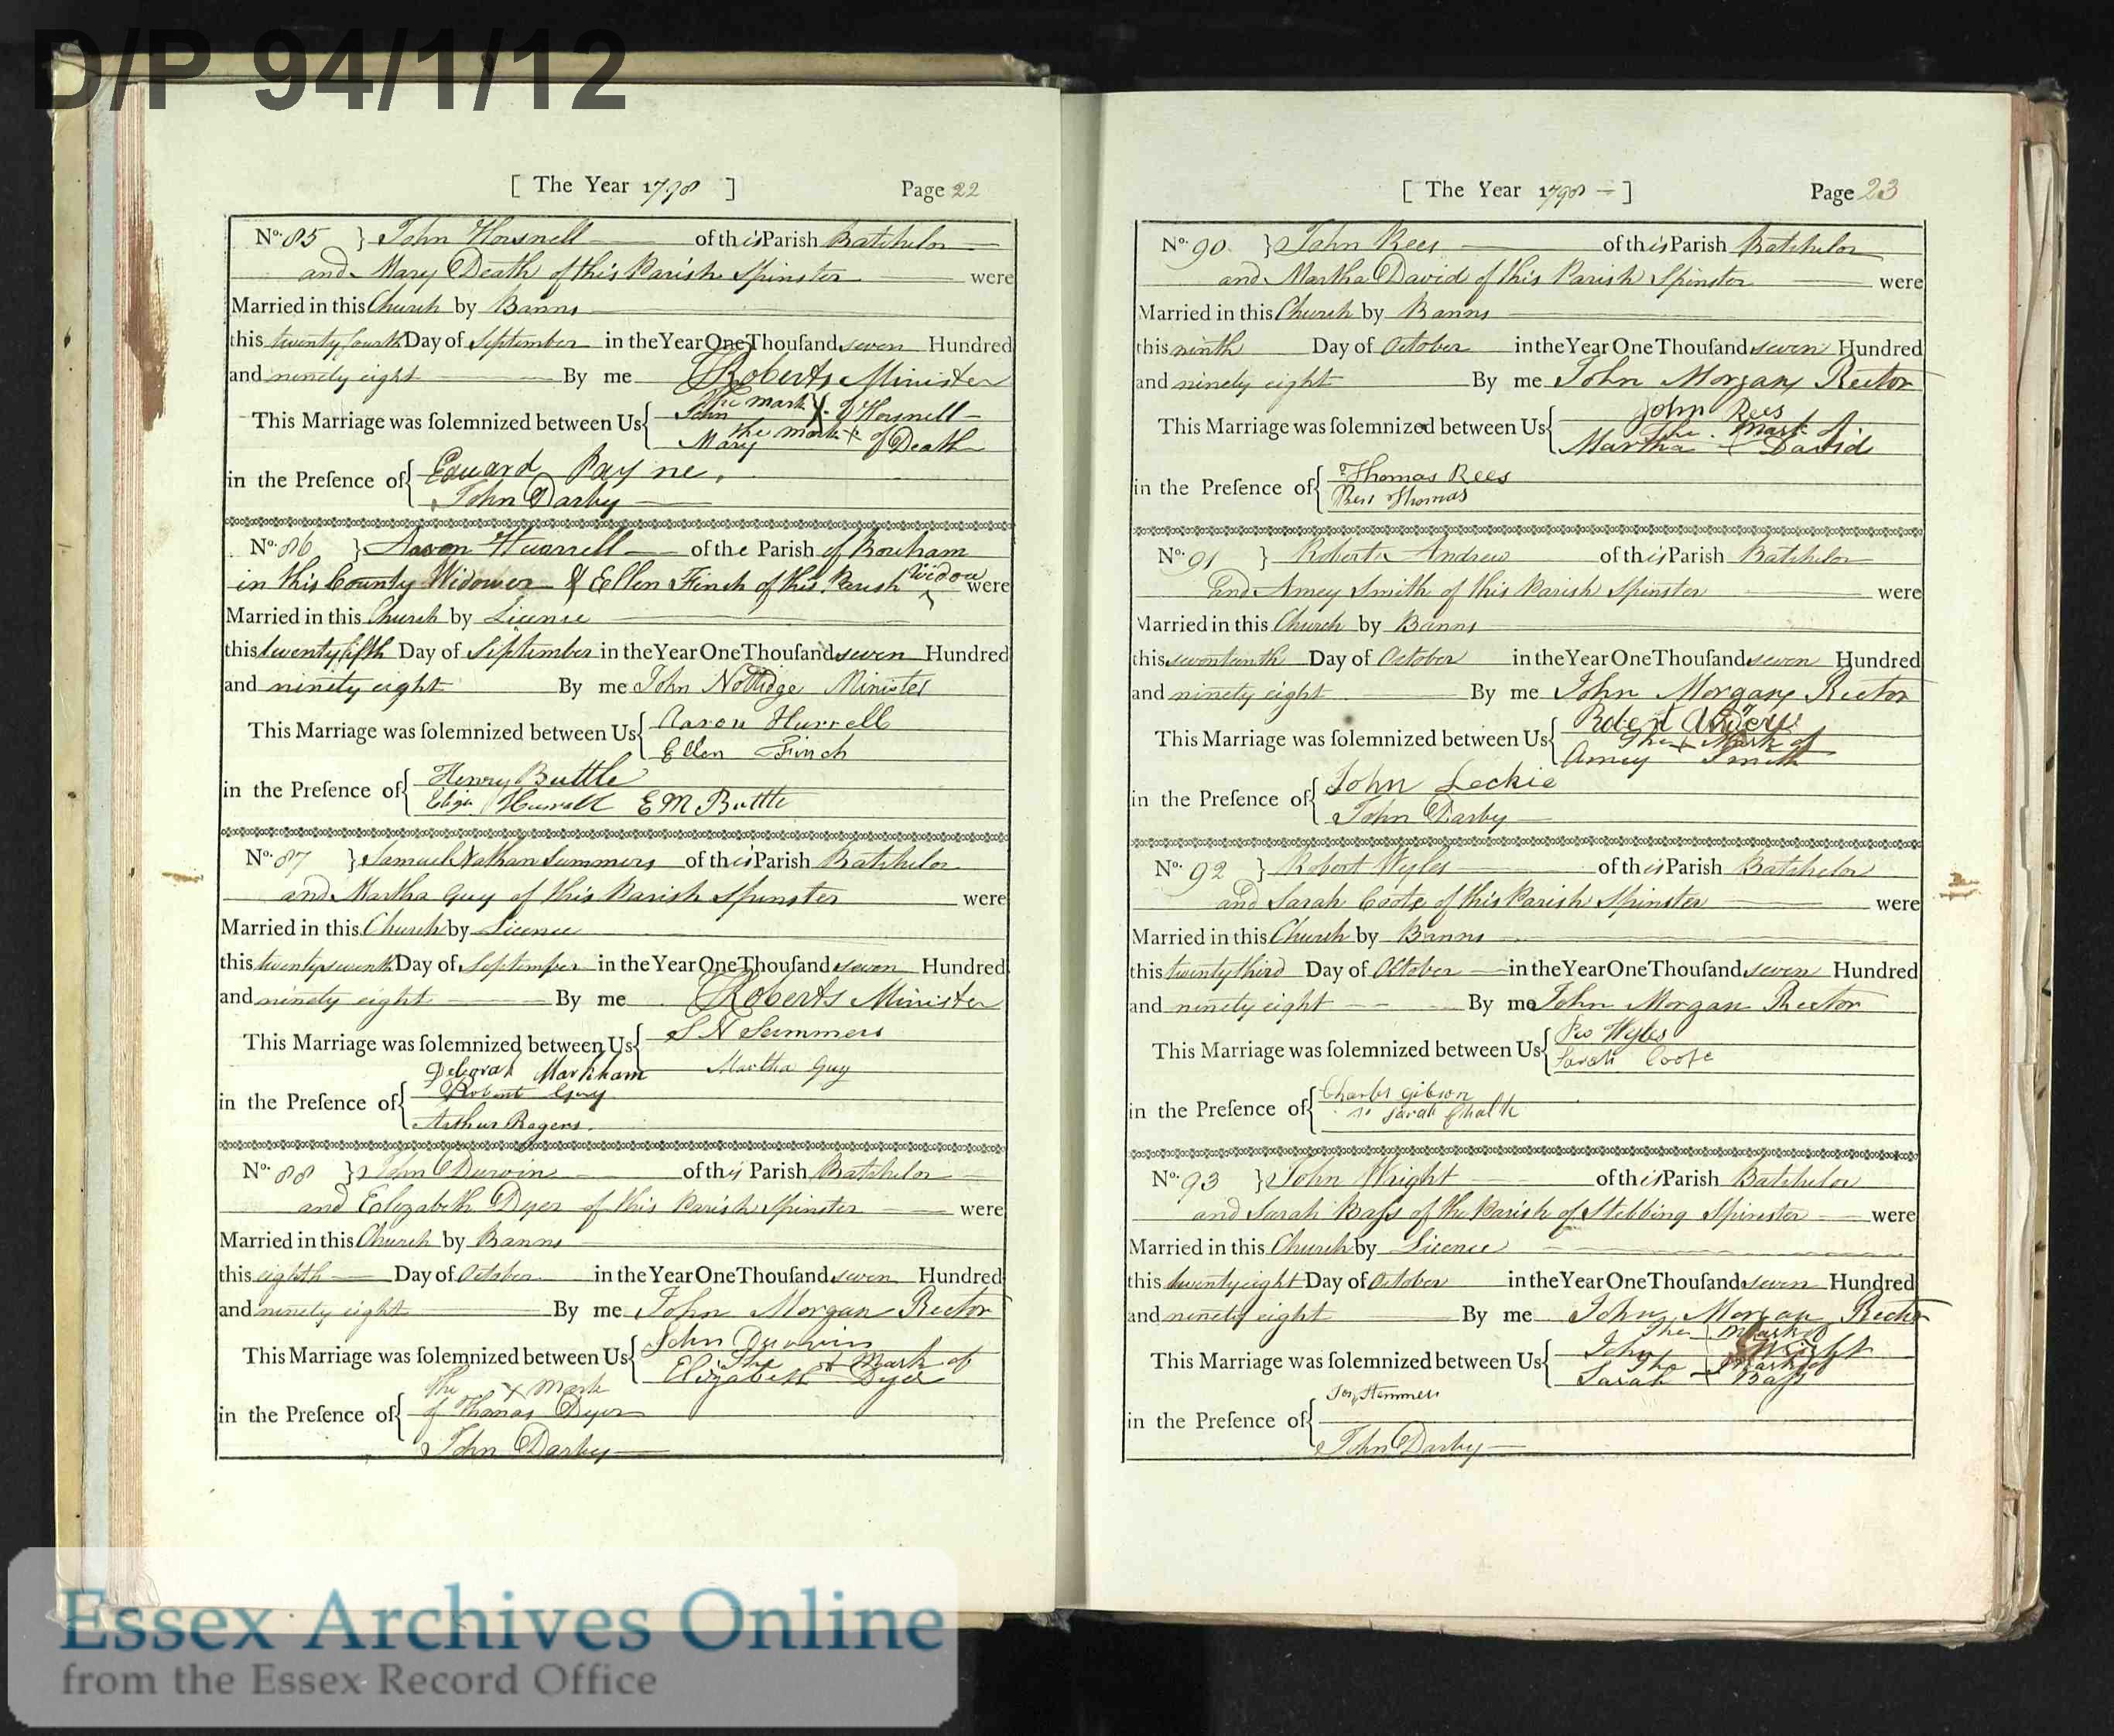 D/P 94/1/12
[ The Year 1798 ] Page 22
No. 85 } John Housnell of this Parish Batchelor
and Mary Death of this Parish Spinster were
Married in this Church by Banns
this twenty fourth Day of September in the Year One Thouſand seven Hundred
and ninety eight By me Roberts Minister
This Marriage was ſolemnized between Us { John The mark X of Housnell
Mary the mark X of Death
in the Preſence of { Edward Payne
John Darby
No. 86 } Aaron Hurrell of the Parish of Boreham
in this County Widower & Ellen Finch of this Parish Widow were
Married in this Church by License
this twenty fifth Day of September in the Year One Thouſand seven Hundred
and ninety eight By me John Nottidge Minister
This Marriage was ſolemnized between Us { Aaron Hurrell
Ellen Finch
in the Preſence of { Henry Buttle
Eliza Hurrell E M Buttle
No. 87 } Samuel Nathan Summers of this Parish Batchelor
and Martha Guy of this Parish Spinster were
Married in this Church by Licence
this twenty seventh Day of September in the Year One Thouſand seven Hundred
and ninety eight By me Roberts Minister
This Marriage was ſolemnized between Us { S N Summers
Martha Guy
Deborah Markham
in the Preſence of { Robert Guy
Arthur Rogers.
No. 88 } John Durwin of this Parish Batchelor
and Elizabeth Dyer of this Parish Spinster were
Married in this Church by Banns
this eighth Day of October in the Year One Thouſand seven Hundred
and ninety eight By me John Morgan Rector
This Marriage was ſolemnized between Us { John Durwin
The X Mark of
Elizabeth Dyer
The X Mark
in the Preſence of { of Thomas Dyer
John Darby
[ The Year 1798 ] Page 23
No. 90 } John Rees of this Parish Batchelor
and Martha David of this Parish Spinster were
Married in this Church by Banns
this ninth Day of October in the Year One Thouſand seven Hundred
and ninety eight By me John Morgan Rector
This Marriage was ſolemnized between Us { John Rees
The Mark of
Martha X David
in the Preſence of { Thomas Rees
Rees Thomas
No. 91 } Robert Andrew of this Parish Batchelor
and Amey Smith of this Parish Spinster were
Married in this Church by Banns
this seventeenth Day of October in the Year One Thouſand seven Hundred
and ninety eight By me John Morgan Rector
This Marriage was ſolemnized between Us { Robert Andrew
The X Mark of
Amey Smith
in the Preſence of { John Leckie
John Darby
No. 92 } Robert Wyles of this Parish Batchelor
and Sarah Coote of this Parish Spinster were
Married in this Church by Banns
this twenty third Day of October in the Year One Thouſand seven Hundred
and ninety eight By me John Morgan Rector
This Marriage was ſolemnized between Us { Ro Wyles
Sarah Coote
in the Preſence of { Charles Gibson
Sarah
No. 93 } John Wright of this Parish Batchelor
and Sarah Baſs of the Parish of Stebbing Spinster were
Married in this Church by Licence
this twenty eight Day of October in the Year One Thouſand seven Hundred
and ninety eight By me John Morgan Rector
The Mark of
This Marriage was ſolemnized between Us { John Wright
The Mark of
Sarah X Baſs
Jos Stemmers
in the Preſence of {
John Darby
Essex Archives Online
from the Essex Record Office